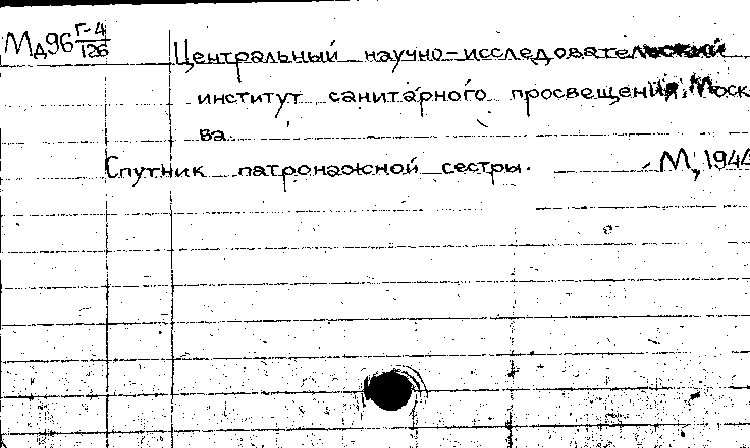 Мд96 Г-4/126
Центральный научно-исследовательский
институт санитарного просвещения, Моск
ва.
Спутник патронажной сестры. М, 1944